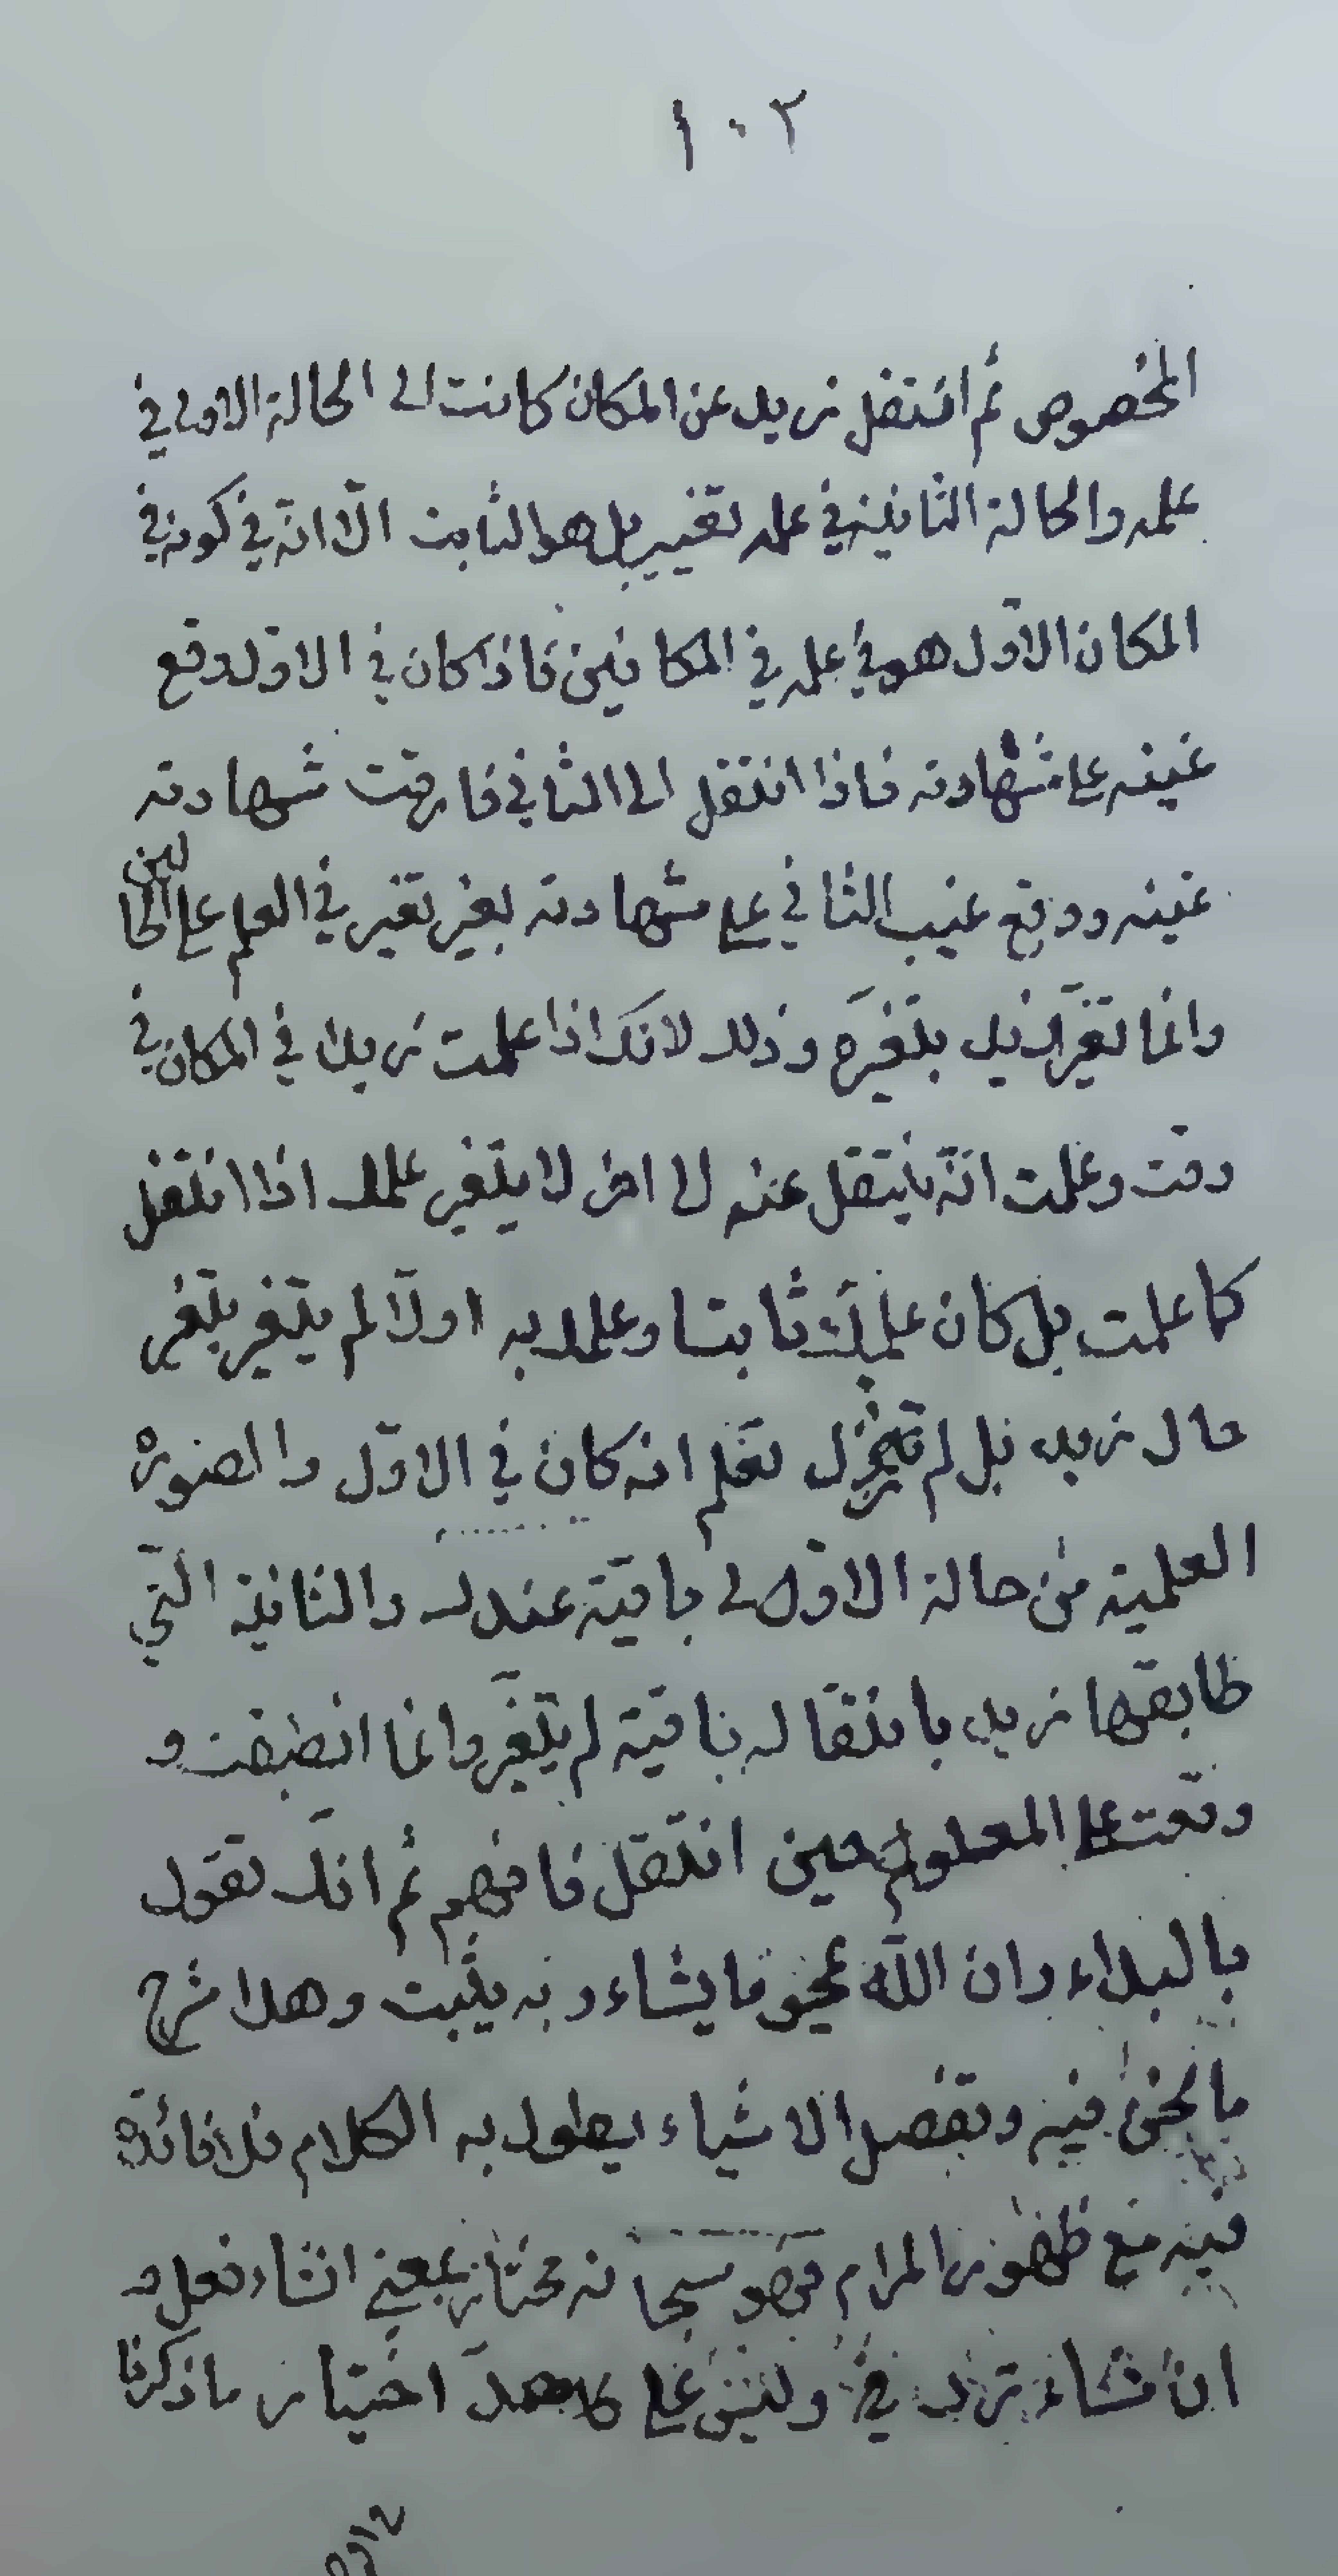 ١٠٢
المخصوص ثم انتقل زيد عن المكان كانت الى الحالة الاولى في
علمه والحالة الثانية في علمه تغيير بل هو الثابت الّا انّه في كونه في
المكان الاوّل هو في علمه في المكانين فاذا كان في الاوّل وقع
غيبه على شهادته فاذا انتقل الى الثاني فارقت شهادته
غيبه ووقع غيب الثاني على شهادته بغير تغير في العلم على الحالين
وانما تغيّر زيد بتغيّره وذلك لانك اذا علمت زيدا في المكان في
وقت وعلمت انّه ينتقل عنه الى اخر لا يتغير علمك اذا انتقل
كما علمت بل كان علمك ثابتا وعلمك به اولّا لم يتغير بتغير
حال زيد بل لم تزل تعلم انه كان في الاوّل والصورة
العلمية من حالة الاوّلى باقيّة عندك والثانية التّي
طابقها زيد بانتقاله باقيّة لم يتغيّر وانما انطبقت و
وقعت على المعلوم حين انتقل فافهم ثم انّك تقول
بالبداء وان اللّه يمحو ما يشاء وبه يثبت وهذا شرح
ما نحن فيه وتفصيل الاشياء يطول به الكلام فلا فائدة
فيه مع ظهور المرام فهو سبحانه مختار بمعنى ان شاء فعل و
ان شاء ترك وليس على كلا احتيار ما ذكرنا